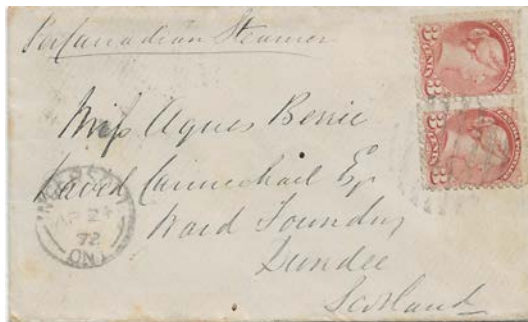 Per Canadian Steamer
Miss Agnes Berrie
David Carmichael Esq
Ward Foundry
Dundee
Scotland
AP 24
72
ONT
3
3